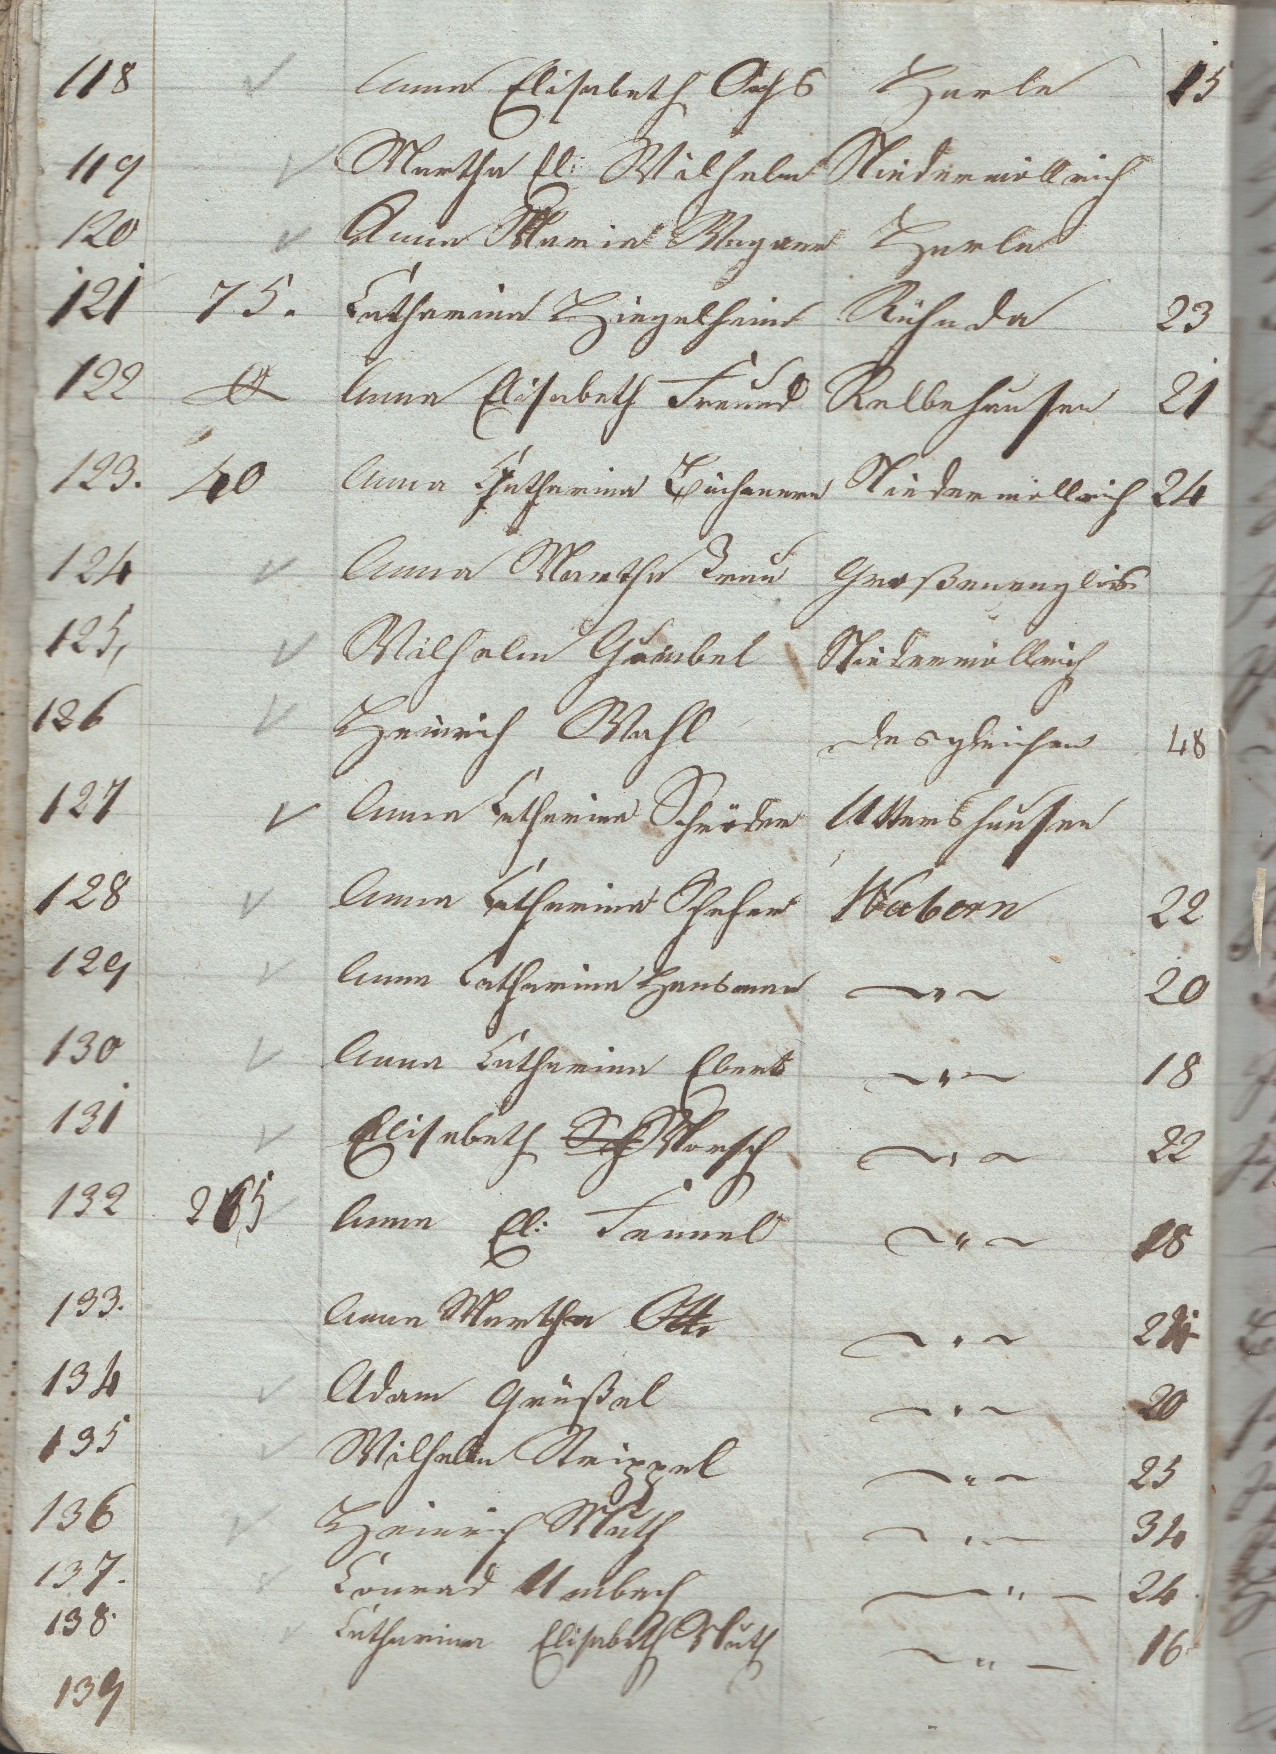 118 ✓ Anna Elisabeth Ochs Harle 15
119 ✓ Martha El: Wilhelm Niedermöllrich
120 ✓ Anna Maria Wagner Harle
121 75. Catharina Hiegelheim Rühnda 23
122 Anna Elisabeth Freund Relbehausen 21
123. 40 Anna Catharina Niedermöllrich 24
124 ✓ Anna Martha Trau Großenenglis
125, ✓ Wilhelm Gümbel Niedermöllrich
126 ✓ Heinrich Wahl desgleichen 48
127 ✓ Anna Catharina Schröder Uttershausen
128 ✓ Anna Catharina Schefer Wabern 22
129 ✓ Anna Catharina Hausman ~"~ 20
130 ✓ Anna Catharina Ebert ~"~ 18
131 ✓ Elisabeth Morsch ~"~ 22
132 265 Anna El: Fennel ~"~ 18
133. Anna Martha Otto ~"~
134 ✓ Adam Grüßel ~"~ 20
135 ✓ Wilhelm Strippel ~"~ 25
136 ✓ Heinrich Muth ~"~ 34
137. ✓ Conrad Umbach ~"~ 24
138. ✓ Catharina Elisabeth Muth ~"~ 16
139